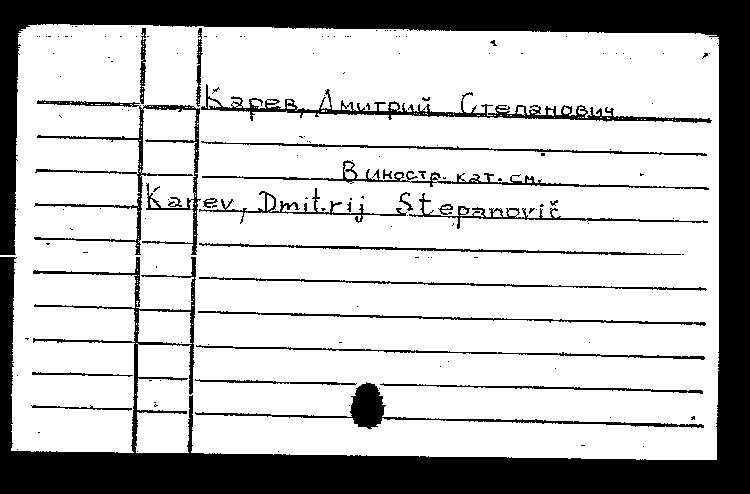 Карев, Дмитрий Степанович
В иностр. кат. см.
Karev, Dmitrij Stepanovič